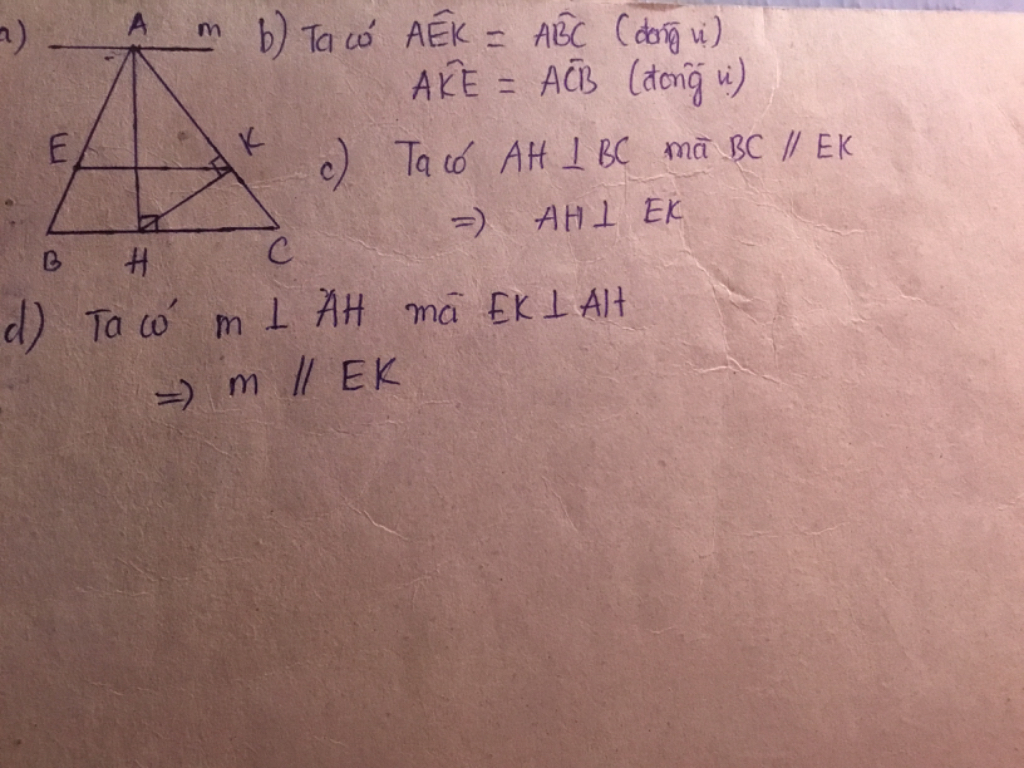 a) A m b) Ta có AÊK = AB̂C (đồng vị)
AK̂E = AĈB (đồng vị)
E K c) Ta có AH ⊥ BC mà BC // EK
=) AH ⊥ EK
B H C
d) Ta có m ⊥ AH mà EK ⊥ AH
=) m // EK